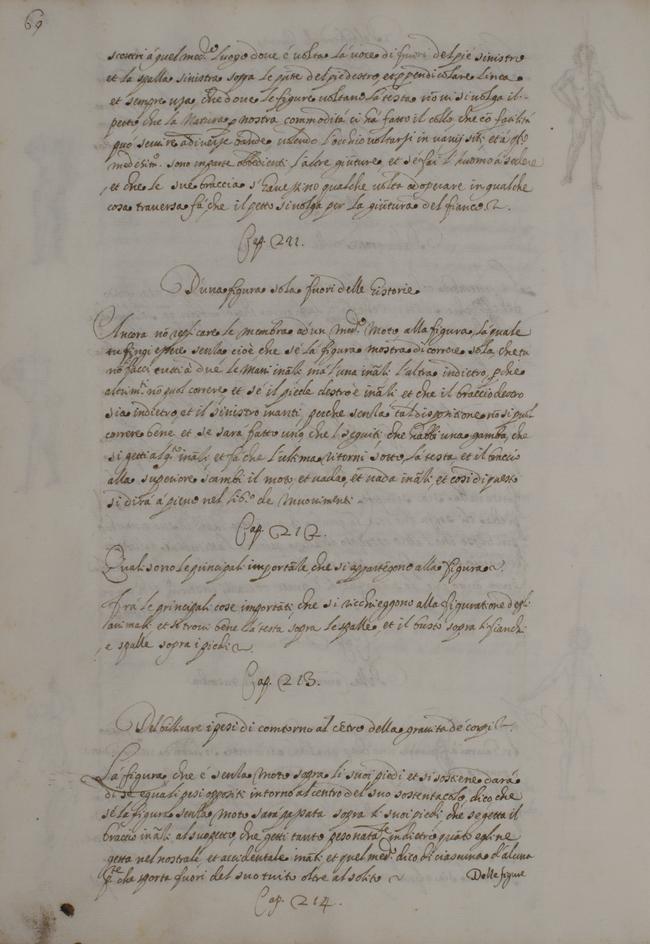 69
scontri a quel med.º luogo dove é volta la voce di fuori del pié sinistro
et la spalla sinistra sopra le pũte del pié destro, et ppendicolare linea
et sempre usa, che dove le figure voltano la testa nõ vi si volga il
petto che la Natura p nostra commodità ci há fatto il collo che cõ facilità
può servire à diverse bande volendo l'occhio voltarsi in varij siti et a q̃sto
med.mo sono in parte obbedienti l'altre giũture et se fai l'huomo à sedere
et che le sue braccia s'havessino qualche volta adoperare in qualche
cosa traversa fá che il petto si volga per la giũtura del fianco
Cap. 211.
D'una figura sola fuori delle historie
Ancora nõ replicare le membra ad un med.º Moto alla figura, la quale
tu fingi essere senla cioè che sé la figura mostra di correre sola che tu
nõ facci tutti á due le Mani inãli ma l'una inãli l'altra indietro, pche
altrim.ti nõ puol correre et sé il piede destro é inãli et che il braccio destro
sia indietro, et il sinistro inanti perche senla tal dispositione nõ si puol
correre bene. et se sará fatto uno che l seguiti che habbi una gamba, che
si getti alq.to inãli et fá che l'ultima ritorni sotto la testa et il braccio
alla superiore scambi il moto, et vada, et vada inãli et cosi di questo
si dirá á pieno nel lib.º de Movimenti
Cap. 212.
Quali sono le principali importãtie che si appartẽgono alla figura
Frà le principali cose importãti che si ricchieggono alla figuratione degli
animali et situar bene la testa sopra le spalle, et il busto sopra li fianchi
e spalle sopra i piedi
Cap. 213.
Del bilicare i pesi di comtorno al cẽtro della gravita de corpi
La figura che é senla Moto sopra li suoi piedi et si sostiene dará
di sé equali pesi oppositi intorno al centro del suo sostentacolo, dico che
sé la figura senla Moto sará passata sopra li suoi piedi che se getta il
braccio inãli al suo petto, che getti tanto peso naturale indietro quãto egli ne
getta nel nostrale et accidentale inãli et quel med.º dico di ciascuna d'alcuna
p.te che sporta fuori del suo tutto oltre al solito
Delle figure
Cap. 214.